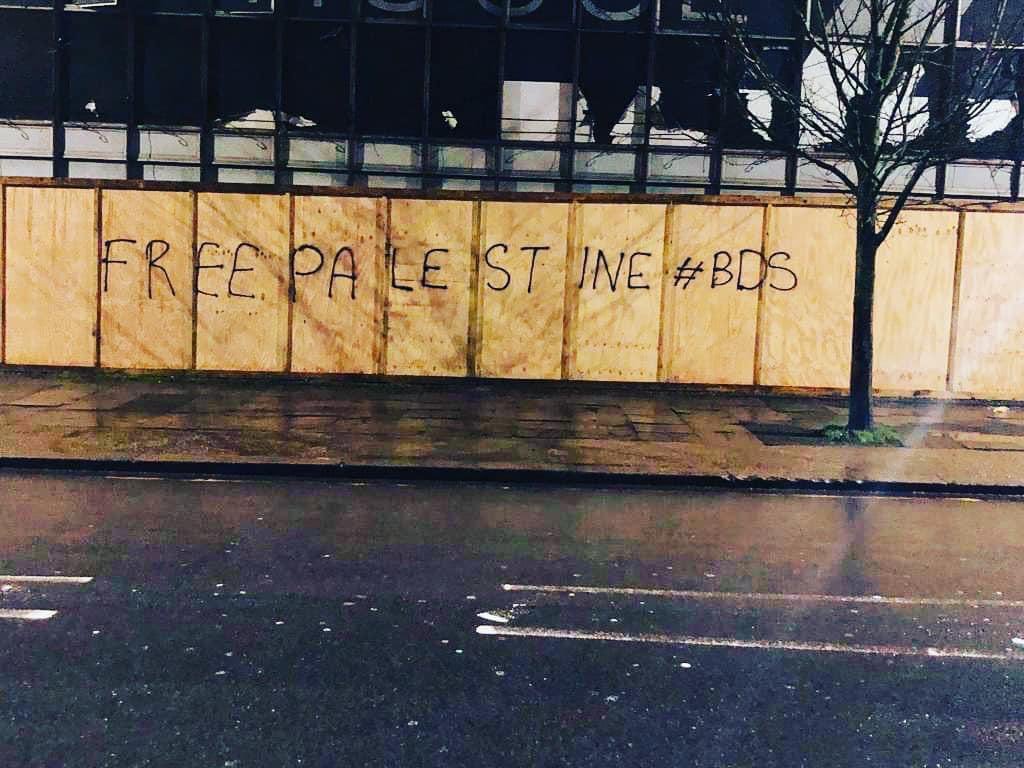 FREE PALESTINE #BDS